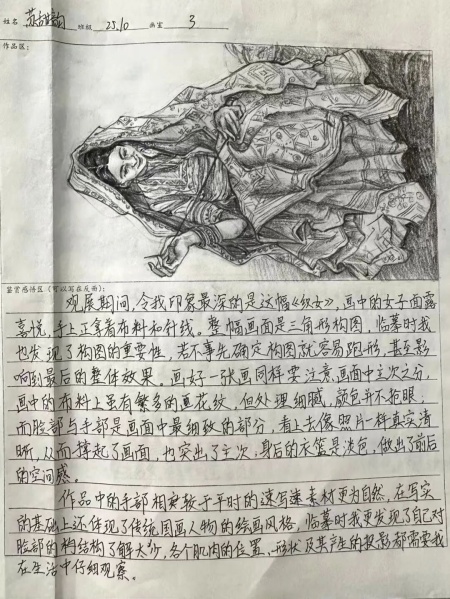 姓名 苏 班级 25.10 画室 3
作品区：
鉴赏感悟区（可以写在反面）：
观展期间，令我印象最深的是这幅《织女》，画中的女子面露
喜悦，手上正拿着布料和针线。整幅画面是三角形构图，临摹时我
也发现了构图的重要性，若不事先确定构图就容易跑形，甚至影
响到最后的整体效果。画好一张画同样要注意画面中主次之分，
画中的布料上虽有繁多的画花纹，但处理细腻，颜色并不抢眼，
而脸部与手部是画面中最细致的部分，看上去像照片一样真实清
晰，从而撑起了画面，也突出了主次，身后的衣篮是淡色，做出了前后
的空间感。
作品中的手部相较于平时的速写素材更为自然，在写实
的基础上还体现了传统国画人物的绘画风格，临摹时我更发现了自己对
脸部的结构了解太少，各个肌肉的位置、形状及其产生的投影都需要我
在生活中仔细观察。